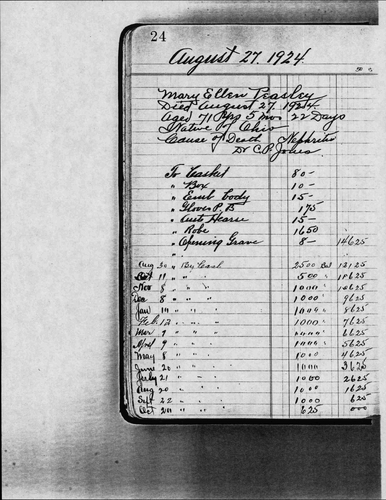 24
August 27. 1924.
Mary Ellen Peasley
Died August 27. 1924.
Aged 71 yrs 5 mos 22 Days
Native of Ohio
Cause of Death Nephritis
Dr C.P. Jones
To Casket 80-
" Box 10-
" Emb body 15-
" Gloves P B 175
" Auto Hearse 15-
" Robe 1650
" Opening Grave 8- 14625
"
Aug 30 " By Cash 2500 Bal 12125
Oct 11 " " " 500 11625
Nov 8 " " " 1000 10625
Dec 8 " " " 1000 9625
Jan " " " 1000 8625
Feb. 12 " " " 1000 7625
Mar 9 " " " 1000 6625
Aprl 9 " " " 1000 5625
May 8 " " " 1000 4625
June 20 " " " 1000 3625
July 21 " " " 1000 2625
Aug 20 " " " 1000 1625
Sept 22 " " " 1000 625
Oct 20 " " " 625 000